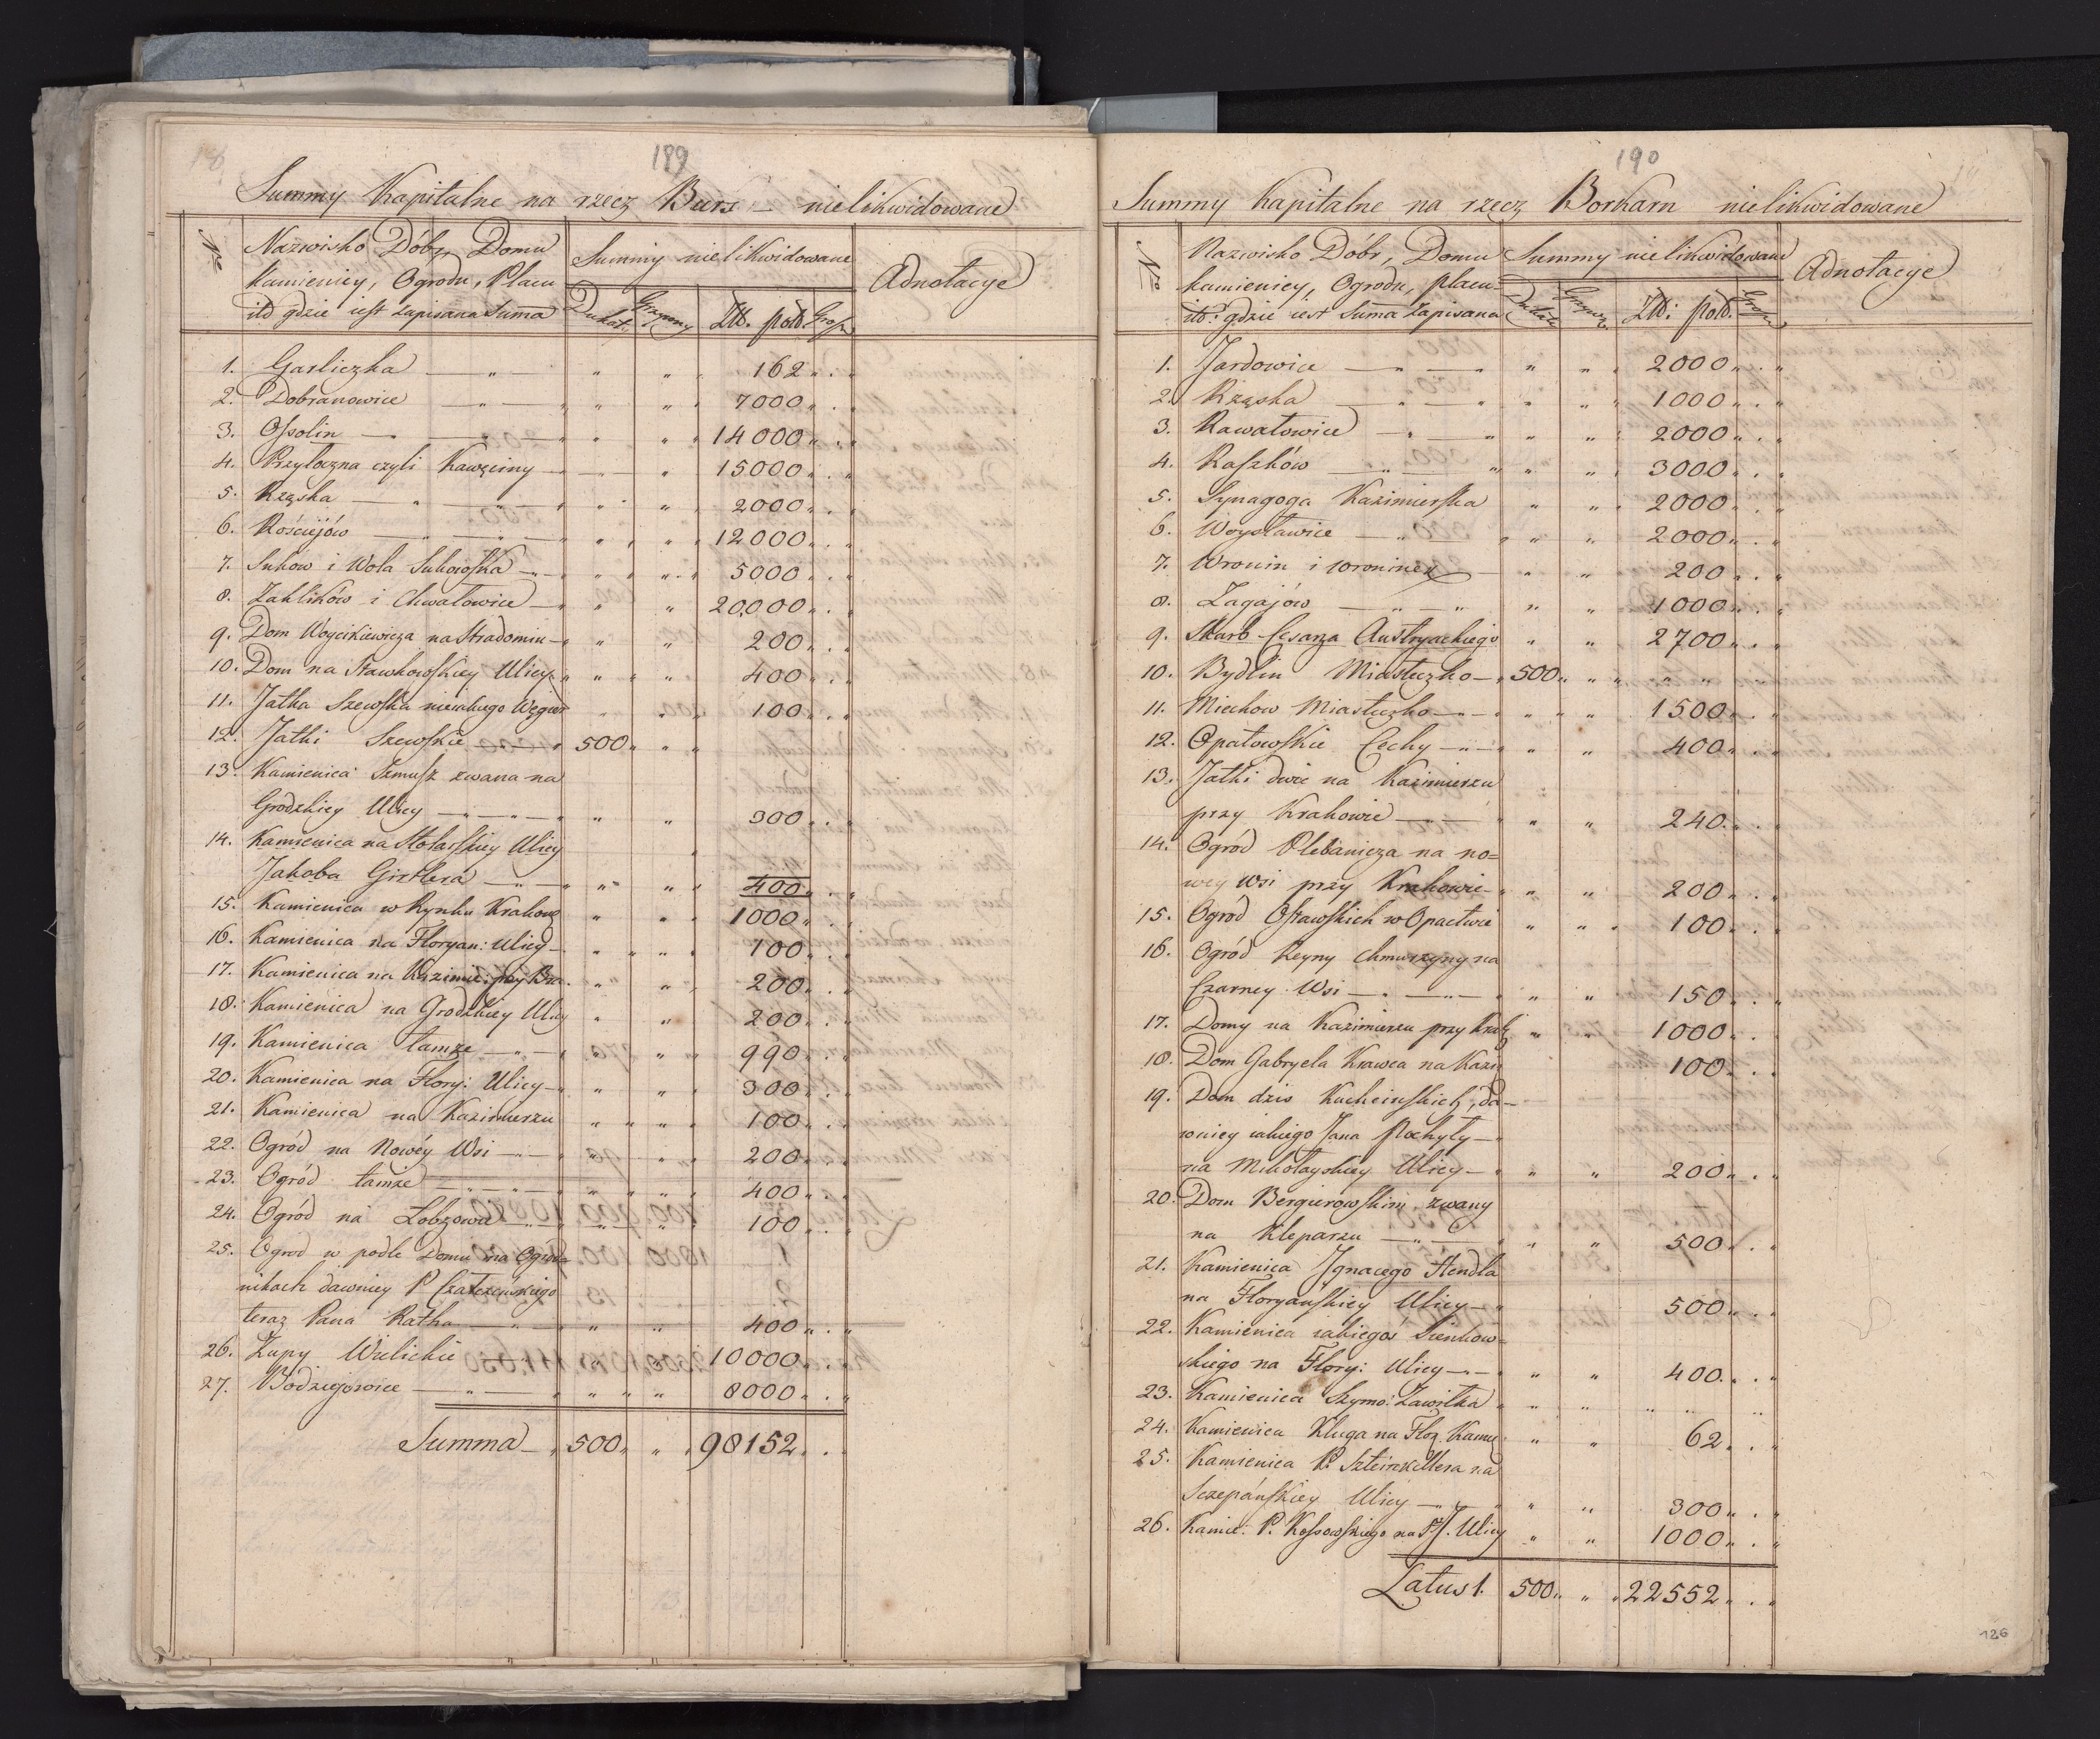 189
Summy Kapitalne na rzecz Burs – nielikwidowane
Nro
Nazwisko Dóbr, Domu
kamienicy, Ogrodu, Placu
itd gdzie iest zapisana Summa
Summy nielikwidowane
Dukat. Grzywny Złł. pols. Grosz
Adnotacye
1. Garliczka — „ — „ „ 162 „ . „
2. Dobranowice — „ — „ „ 7000 „ . „
3. Ossolin — „ — „ „ 14000 „ . „
4. Przyłoczna czyli Kawęciny — „ 15000 „ . „
5. Rząska — „ — „ „ 2000 „ . „
6. Kościejów — „ — „ „ 12000 „ . „
7. Suków i Wola Sukowska — „ „ 5000 „ . „
8. Zaklików i Chwałowice — „ „ 20000 „ . „
9. Dom Woycikiewicza na Stradomiu — „ „ 200 „ . „
10. Dom na Sławkowskiey Ulicy „ „ 400 „ . „
11. Jatka Szewska nieiakiego Węgierz „ „ 100 „ . „
12. Jatki Szewskie — 500 „ „ „
13. Kamienica Szmusz zwana na
Grodzkiey Ulicy — „ — „ „ 300 „ . „
14. Kamienica na Stolarskiey Ulicy
Jakoba Girtlera — „ — „ „ 400 „ . „
15. Kamienica w Rynku Krakows „ „ 1000 „ . „
16. Kamienica na Floryan: Ulicy — „ „ 100 „ . „
17. Kamienica na Kazimie: przy Bra. „ „ 200 „ . „
18. Kamienica na Grodzkiey Ulicy „ „ 200 „ . „
19. Kamienica tamże — „ — „ „ 990 „ . „
20. Kamienica na Flory: Ulicy — „ „ 300 „ . „
21. Kamienica na Kazimierzu „ „ 100 „ . „
22. Ogród na Nowéy Wsi — „ — „ „ 200 „ . „
23. Ogród tamże — „ — „ „ 400 „ . „
24. Ogród na Łobzowie — „ „ 100 „ . „
25. Ogrod w podle Domu na Ogrod-
nikach dawniey P.
teraz Pana Ratha — „ — „ „ 400 „ . „
26. Zupy Wielickie — „ „ 10000 „ . „
27. Wodziejowice — „ — „ „ 8000 „ . „
Summa — „ 500 „ „ „ 98152 „ . „
190
Summy Kapitalne na rzecz Borkarn nielikwidowane
Nro
Nazwisko Dóbr, Domu
kamienicy, Ogrodu, placu
itd: gdzie iest Summa zapisana
Summy nielikwidowane
Dukat Grzywn. Złł: pols. Grosz
Adnotacye
1. Jardowice — „ — „ „ „ 2000 „ . „
2. Rząska — „ — „ „ „ 1000 „ . „
3. Rawałowice — „ — „ „ „ 2000 „ . „
4. Raszków — „ — „ „ „ 3000 „ . „
5. Synagoga Kazimierska „ „ 2000 „ . „
6. Woysławice — „ — „ „ „ 2000 „ . „
7. Wronin i wroninek — „ „ 200 „ . „
8. Zagajów — „ — „ „ „ 1000 „ . „
9. Skarb Cesarza Austryackiego „ „ 2700 „ . „
10. Bydlin Miasteczko — „ 500 „ „ „ „ „
11. Miechow Miasteczko — „ — „ „ „ 1500 „ . „
12. Opatowskie Cechy — „ — „ „ „ 400 „ . „
13. Jatki dwie na Kazimierzu
przy Krakowie — „ „ „ 240 „ . „
14. Ogród Plebanicza na no=
wey wsi przy Krakowie — „ „ „ 200 „ . „
15. Ogród Ostawskich w Opactwie „ „ 100 „ . „
16. Ogród Reyny Chmurzyny na
Czarney Wsi — „ — „ — „ „ „ 150 „ . „
17. Domy na Kazimierzu przy Krak: „ „ 1000 „ . „
18. Dom Gabryela Krawca na Kazim 100 „ . „
19. Dom dzis Kucheinskich, da—
wniey iakiego Jana Pochyły —
na Mikołayskiey Ulicy — „ „ „ 200 „ . „
20. Dom Bergierowskim zwany
na Kleparzu — „ — „ „ „ 500 „ . „
21. Kamienica Ignacego Hendla
na Floryanskiey Ulicy — „ 500 „ . „
22. Kamienica iakiegoś Sienkow-
skiego na Flory: Ulicy — „ — „ „ 400 „ . „
23. Kamienica Szymo: Zawilka „ „ „ „ „ „
24. Kamienica Kluga na Flor. Kamie „ „ 62 „ . „
25. Kamienica P. Szteinkellera na
Sczepańskiey Ulicy — „ — „ „ „ 300 „ . „
26. Kamie: P. Kossowskiego na Fl. Ulicy „ „ 1000 „ . „
Latus 1. 500 „ „ „ 22552 „ . „
126